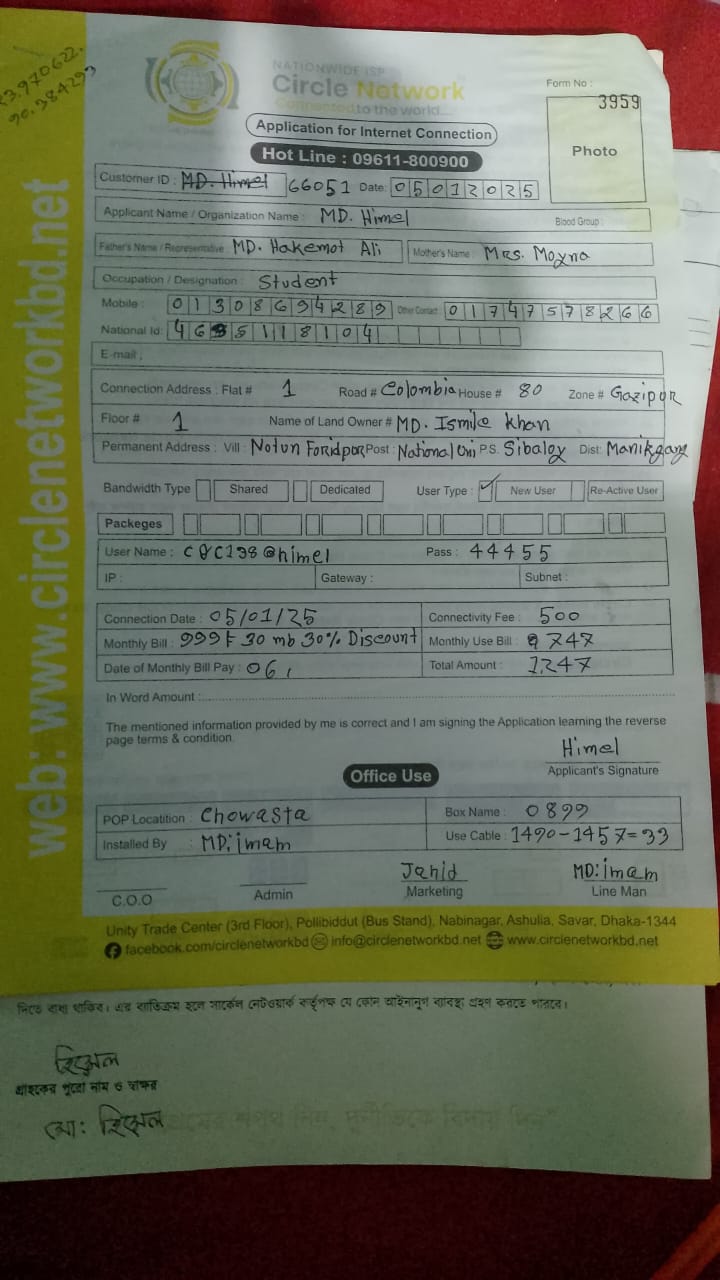 23.970622,
90.384293
NATIONWIDE ISP
Circle Network
Connected to the world....
Form No :
3959
Photo
Application for Internet Connection
Hot Line : 09611-800900
Customer ID : MD. Himel 66051 Date: 05012025
Applicant Name / Organization Name : MD. Himel Blood Group :
Father's Name / Representative : MD. Hakemot Ali Mother's Name : Mrs. Moyna
Occupation / Designation : Student
Mobile : 01308694289 Other Contact : 01747578266
National Id: 4695118104
E-mail :
Connection Address : Flat # 1 Road # Colombia House # 80 Zone # Gazipur
Floor # 1 Name of Land Owner # MD. Ismile Khan
Permanent Address : Vill : Notun Foridpor Post : National Uni P.S. Sibaloy Dist: Manikgang
Bandwidth Type Shared Dedicated User Type : New User Re-Active User
Packeges
User Name : @himel Pass : 44455
IP : Gateway : Subnet :
Connection Date : 05/01/25 Connectivity Fee : 500
Monthly Bill : 999৳ 30 mb 30% Discount Monthly Use Bill : 747
Date of Monthly Bill Pay : 06, Total Amount : 1247
In Word Amount :
The mentioned information provided by me is correct and I am signing the Application learning the reverse
page terms & condition.
Himel
Applicant's Signature
Office Use
POP Locatition : Chowasta Box Name : 0899
Installed By : MD: imam Use Cable : 1490-1457=33
Jahid MD: imam
C.O.O Admin Marketing Line Man
Unity Trade Center (3rd Floor), Pollibiddut (Bus Stand), Nabinagar, Ashulia, Savar, Dhaka-1344
facebook.com/circlenetworkbd info@circlenetworkbd.net www.circlenetworkbd.net
web: www.circlenetworkbd.net
দিতে বাধ্য থাকিব। এর ব্যতিক্রম হলে সার্কেল নেটওয়ার্ক কর্তৃপক্ষ যে কোন আইনানুগ ব্যবস্থা গ্রহণ করতে পারবে।
হিমেল
গ্রাহকের পুরো নাম ও স্বাক্ষর
মো: হিমেল